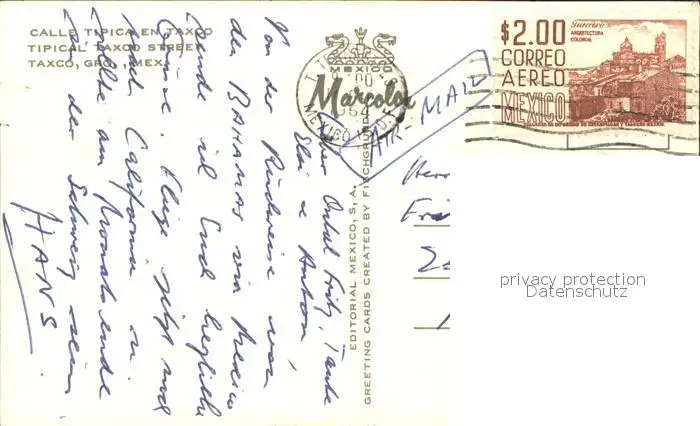 CALLE TIPICA EN TAXCO
TIPICAL TAXCO STREET
TAXCO, GRO., MEX.
MEXICO
Marcolor
AIR-MAIL
$2.00
CORREO
AEREO
MEXICO
Guerrero
ARQUITECTURA
COLONIAL
EDITORIAL MEXICO, S. A.
GREETING CARDS CREATED BY FISCHGRUND
Onkel Fritz, Tante
Elsi & Anton,
Von der Rückreise von
den BAHAMAS via Mexico
sende ich Euch herzliche
Grüsse. Fliege jetzt
nach California
sollte am Monatsende
in der Schweiz sein
HANS
privacy protection
Datenschutz